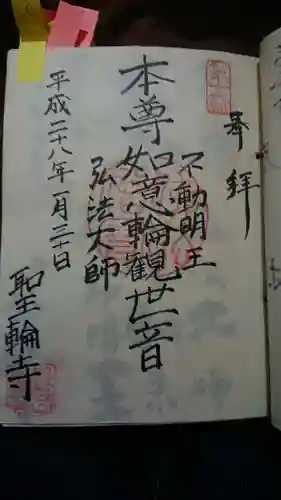 奉拝
不動明王
本尊如意輪觀世音
弘法大師
平成二十八年一月三十日
聖輪寺